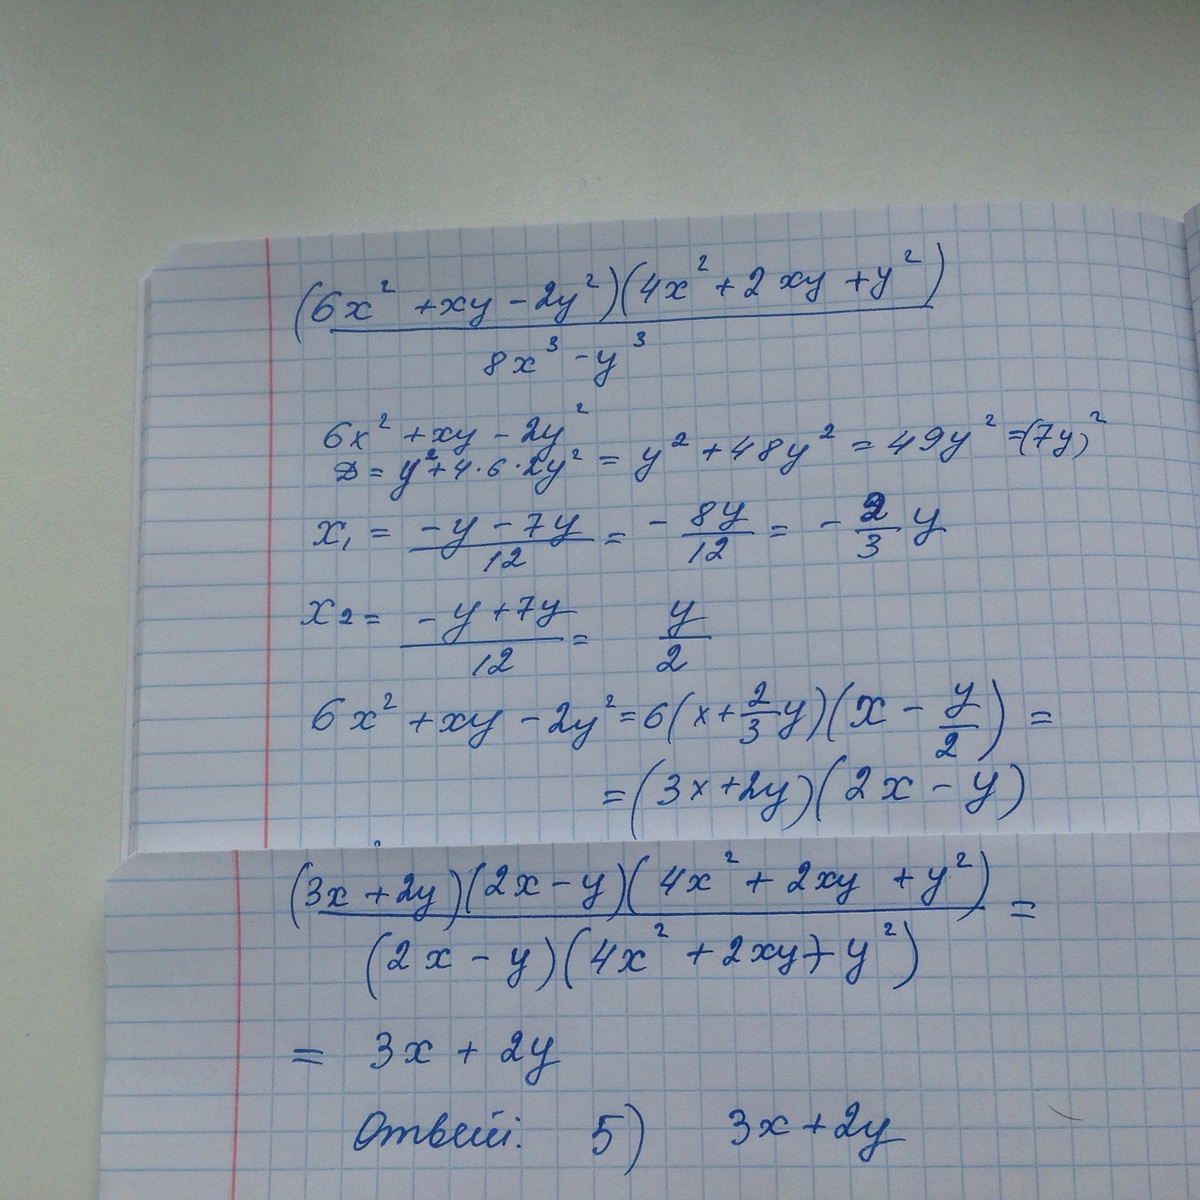 (6x² + xy - 2y²)(4x² + 2xy + y²)
8x³ - y³
6x² + xy - 2y²
D = y² + 4·6·2y² = y² + 48y² = 49y² = (7y)²
x₁ = (-y - 7y)/12 = - 8y/12 = - 2/3 y
x₂ = (-y + 7y)/12 = y/2
6x² + xy - 2y² = 6(x + 2/3 y)(x - y/2) =
= (3x + 2y)(2x - y)
(3x + 2y)(2x - y)(4x² + 2xy + y²) =
(2x - y)(4x² + 2xy + y²)
= 3x + 2y
Ответ: 5) 3x + 2y